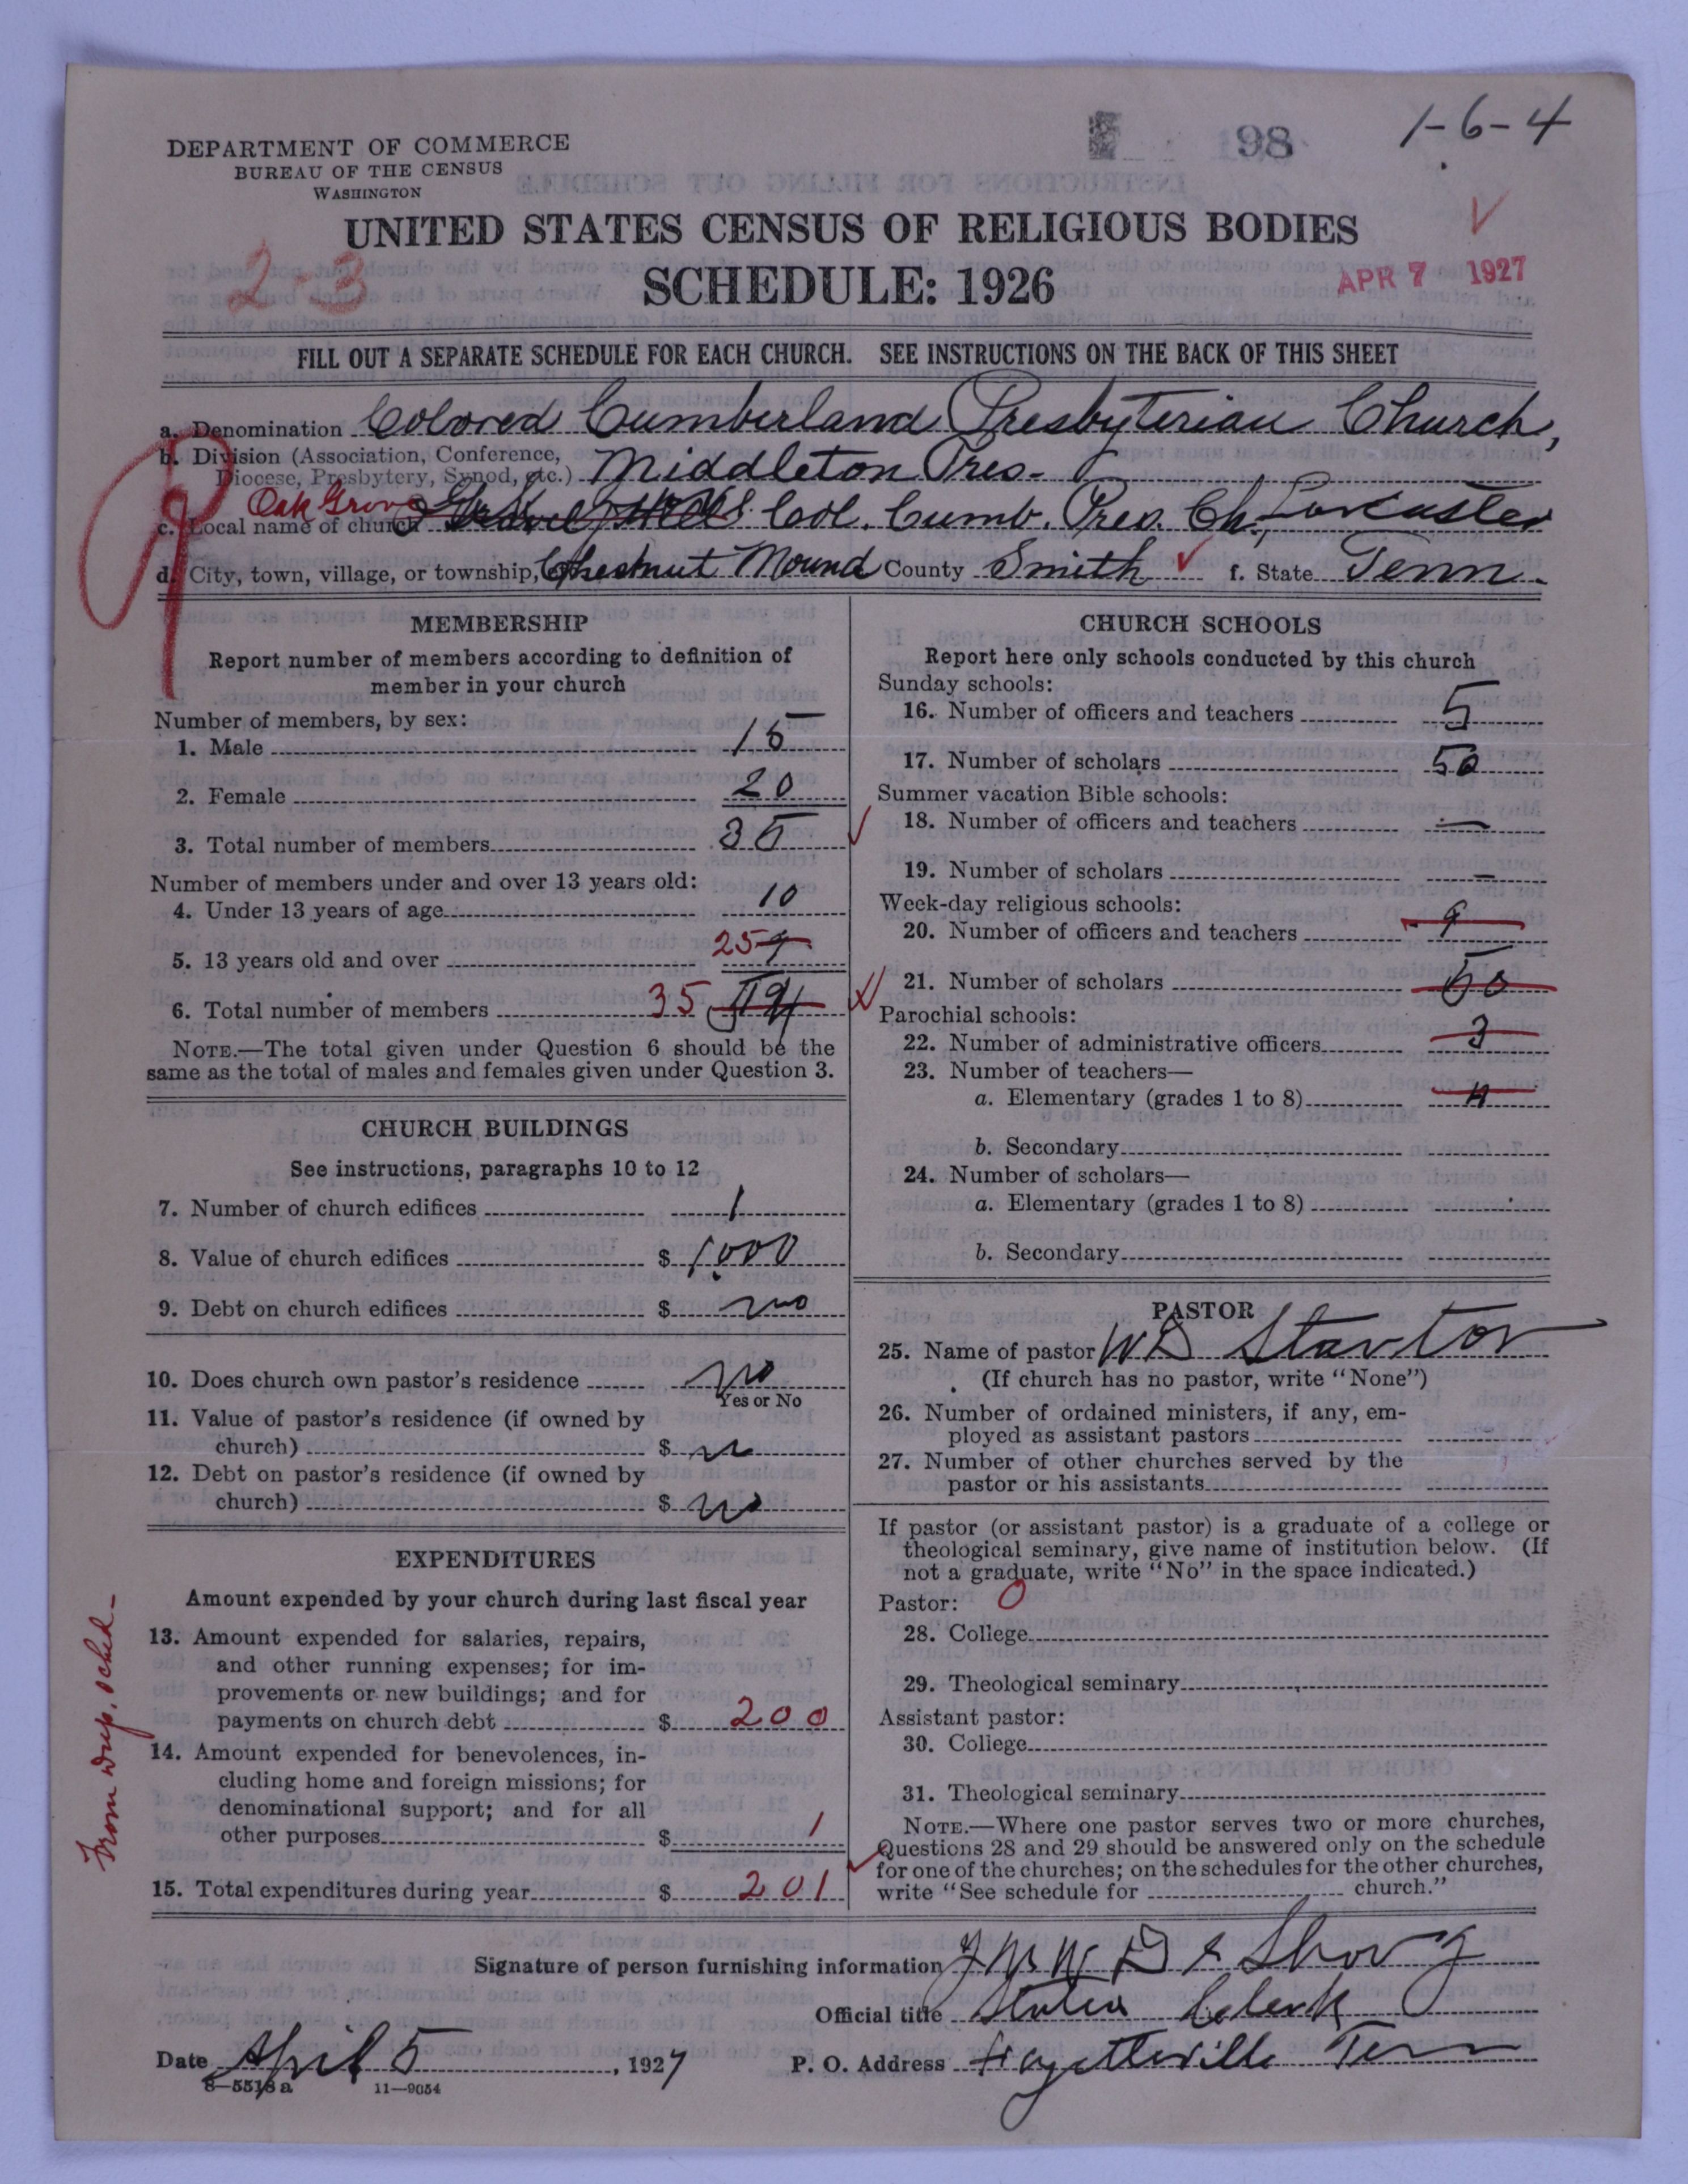 198
1-6-4
DEPARTMENT OF COMMERCE
BUREAU OF THE CENSUS
WASHINGTON
UNITED STATES CENSUS OF RELIGIOUS BODIES
SCHEDULE: 1926
2-3
APR 7 1927
FILL OUT A SEPARATE SCHEDULE FOR EACH CHURCH. SEE INSTRUCTIONS ON THE BACK OF THIS SHEET
a. Denomination Colored Cumberland Presbyterian Church,
b. Division (Association, Conference, Diocese, Presbytery, Synod, etc.) Middleton Pres-
c. Local name of church Oak Grove Col. Cumb. Pres. Ch., Lancaster
d. City, town, village, or township, Chestnut Mound County Smith f. State Tenn.
MEMBERSHIP
Report number of members according to definition of
member in your church
Number of members, by sex:
1. Male 15
2. Female 20
3. Total number of members 35
Number of members under and over 13 years old:
4. Under 13 years of age 10
5. 13 years old and over 25 9
6. Total number of members 35 19
NOTE.—The total given under Question 6 should be the
same as the total of males and females given under Question 3.
CHURCH BUILDINGS
See instructions, paragraphs 10 to 12
7. Number of church edifices 1
8. Value of church edifices $ 1,000
9. Debt on church edifices $ no
10. Does church own pastor's residence no
Yes or No
11. Value of pastor's residence (if owned by
church) $
12. Debt on pastor's residence (if owned by
church) $ no
EXPENDITURES
Amount expended by your church during last fiscal year
13. Amount expended for salaries, repairs,
and other running expenses; for im-
provements or new buildings; and for
payments on church debt $ 200
14. Amount expended for benevolences, in-
cluding home and foreign missions; for
denominational support; and for all
other purposes $ 1
15. Total expenditures during year $ 201
From dup. sched-
CHURCH SCHOOLS
Report here only schools conducted by this church
Sunday schools:
16. Number of officers and teachers 5
17. Number of scholars 50
Summer vacation Bible schools:
18. Number of officers and teachers —
19. Number of scholars —
Week-day religious schools:
20. Number of officers and teachers 9
21. Number of scholars 50
Parochial schools:
22. Number of administrative officers 3
23. Number of teachers—
a. Elementary (grades 1 to 8)
b. Secondary
24. Number of scholars—
a. Elementary (grades 1 to 8)
b. Secondary
PASTOR
25. Name of pastor W D Stanton
(If church has no pastor, write "None")
26. Number of ordained ministers, if any, em-
ployed as assistant pastors
27. Number of other churches served by the
pastor or his assistants
If pastor (or assistant pastor) is a graduate of a college or
theological seminary, give name of institution below. (If
not a graduate, write "No" in the space indicated.)
Pastor: 0
28. College
29. Theological seminary
Assistant pastor:
30. College
31. Theological seminary
NOTE.—Where one pastor serves two or more churches,
Questions 28 and 29 should be answered only on the schedule
for one of the churches; on the schedules for the other churches,
write "See schedule for church."
Signature of person furnishing information
Official title Stated Clerk
Date April 5, 1927 P. O. Address Fayetteville Tenn
8—5518 a 11—9054